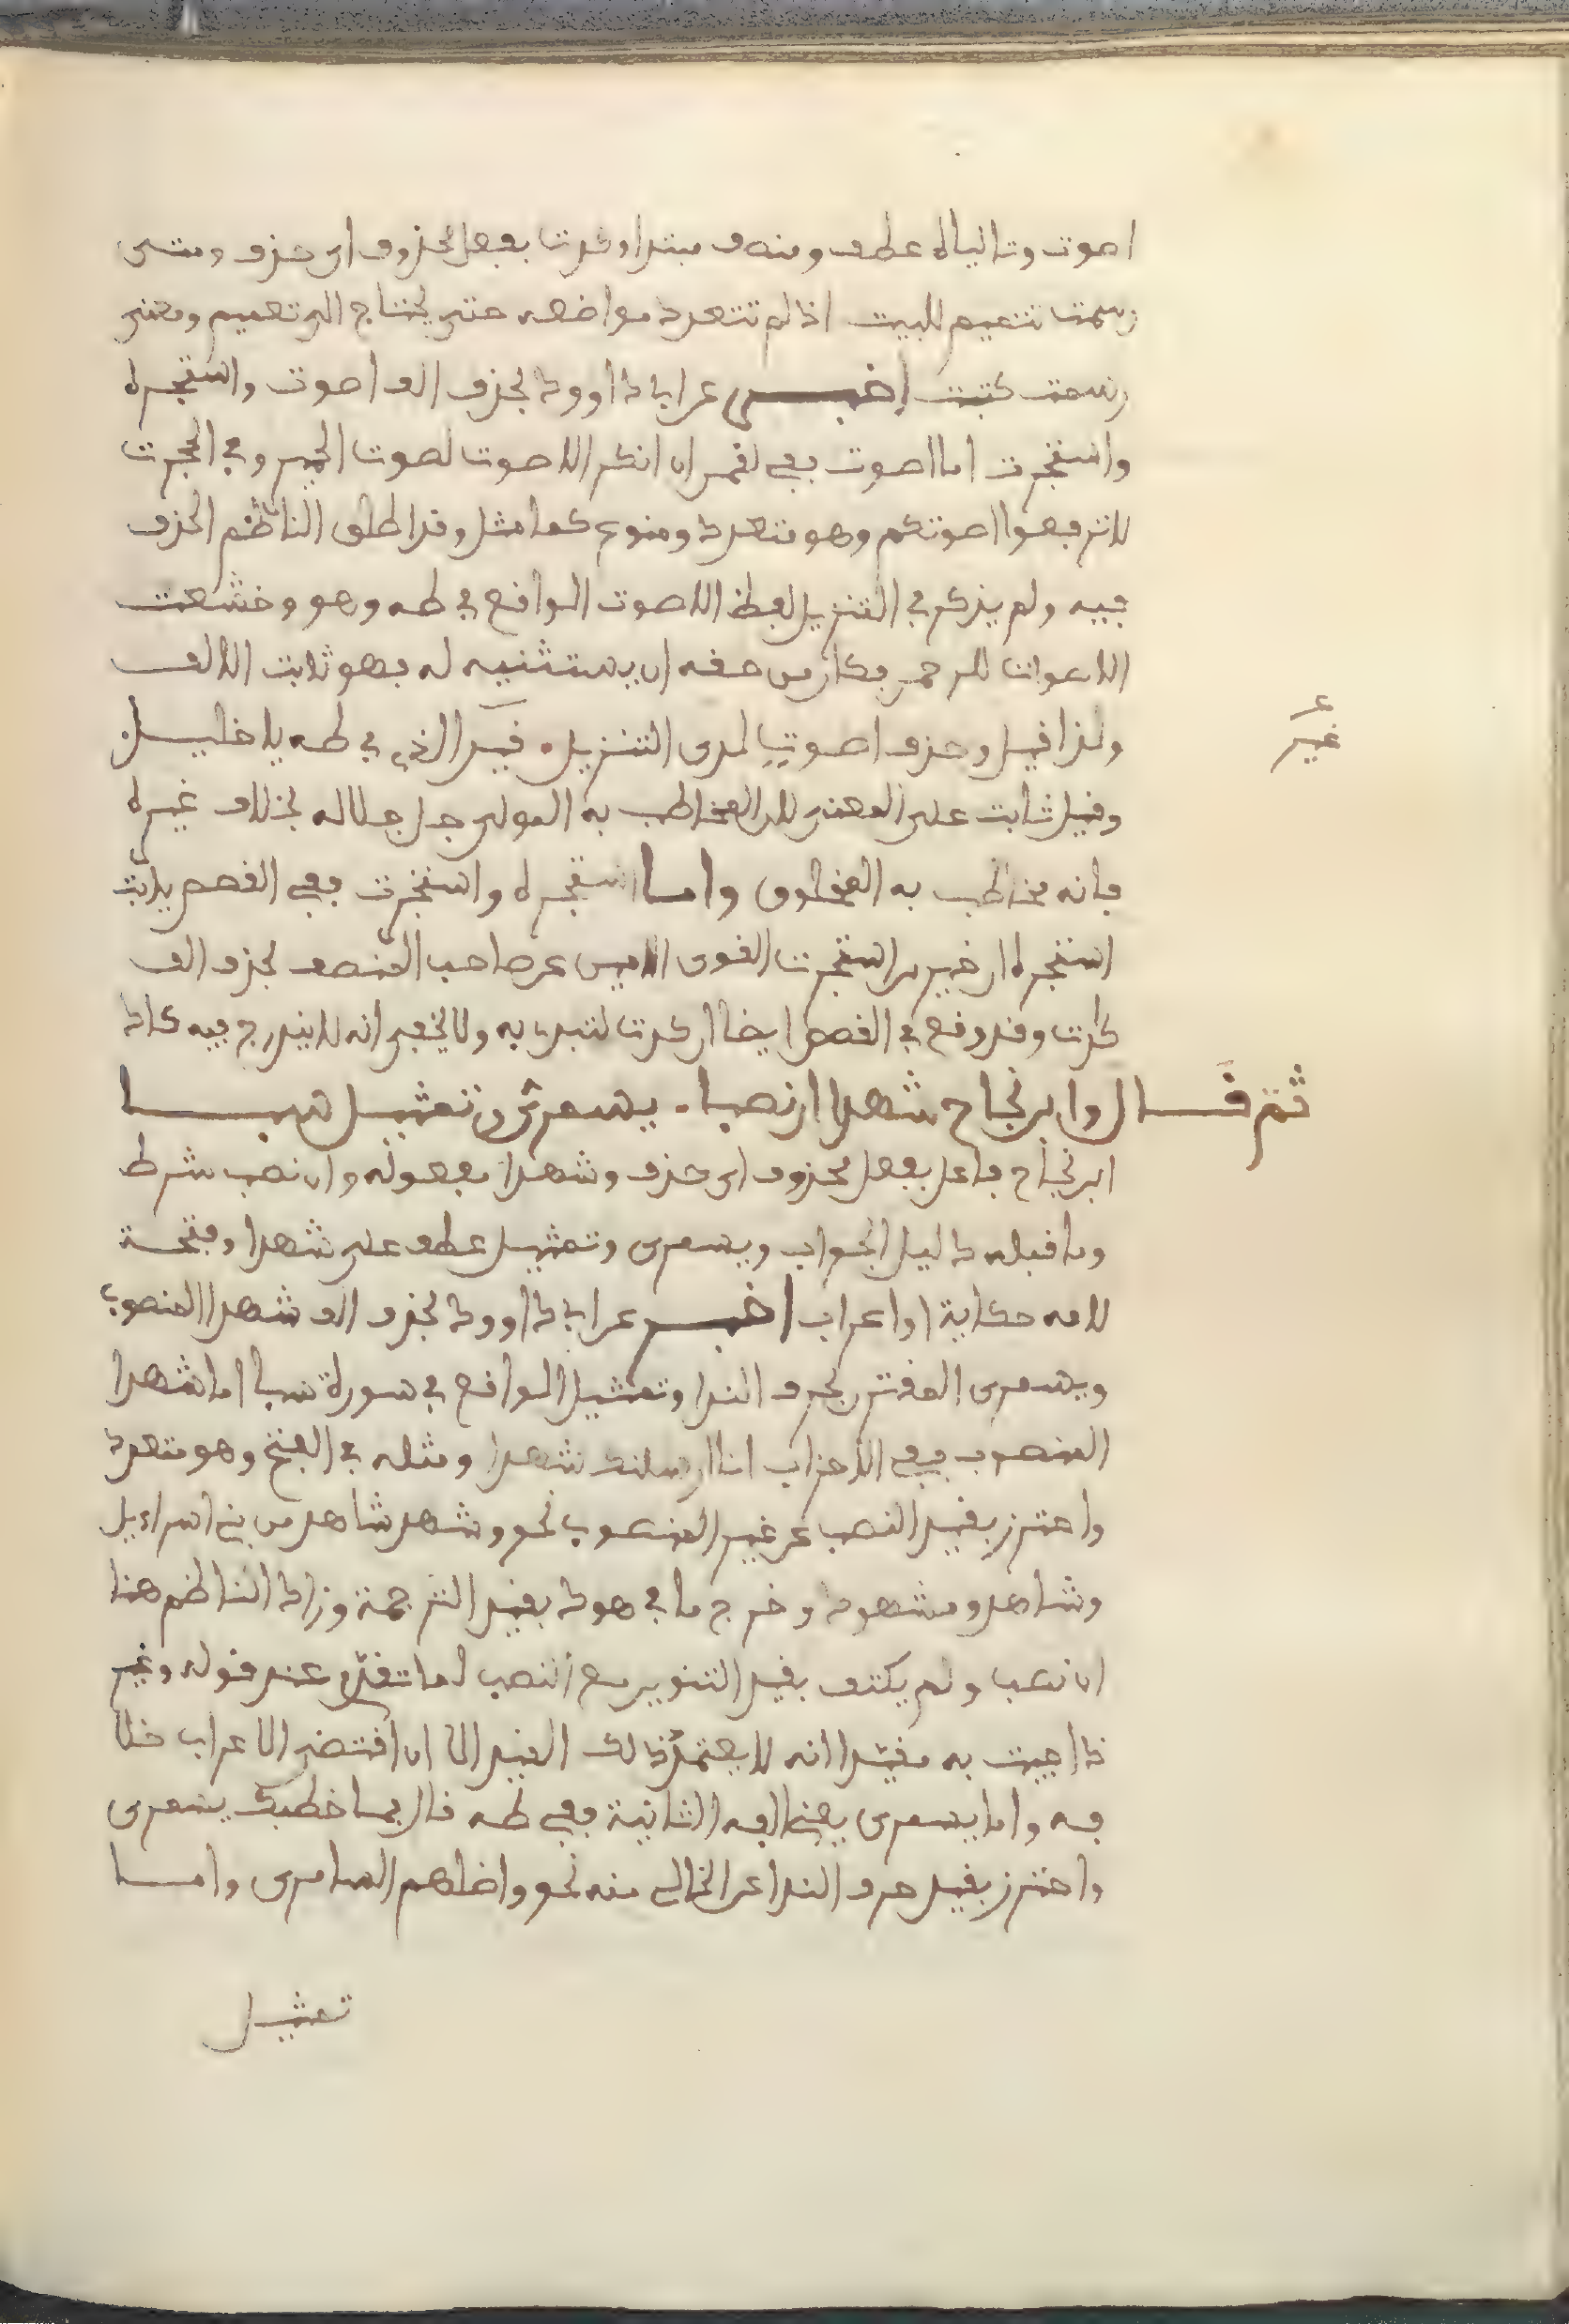 اصوت وتالياه عطف ومنصف مبتدا وكدت بفعل محذوف اى حذف ومتى
رسمت تتميم للبيت اذ لم تتعدد مواضعه حتى يحتاج الى تعميم ومعنى
رسمت كتبت اخبر عن ابى داوود بحذف الف اصوت واستجره
واستجرت اما اصوت ففى لقمن ان انكر الاصوت لصوت الحمير وفى الحجرت
لا ترفعوا اصوتكم وهو متعدد ومنوع كما مثل وقد اطلق الناظم الحذف
فيه ولم يذكر فى التنزيل لفظ الاصوت الواقع فى طه وهو وخشعت
الاصوات للرحمن فكان من حقه ان يستثنيه له فهو ثابت الالف
ولذا قيل وحذف اصوت لدى التنزيل. قيد الذى فى طه يا خليل.
وقيل ثابت على المعنى لان المخاطب به المولى جل جلاله بخلاف غيره
فانه مخاطب به المخلوق واما استجره واستجرت ففى القصص يابت
استجره ان خير من استجرت القوى الامين عن صاحب المنصف بحذف الف
كدت وقد وقع فى القصص ايضا ان كدت لتبدى به ولا يخفى انه لا يندرج فيه كاد
ثم قال وابن نجاح شهدا ان نصبا. يسمرى وتمثيل سبا
ابن نجاح فاعل بفعل محذوف اى حذف وشهدا مفعوله وان نصب شرط
وما قبله دليل الجواب ويسمرى وتمثيل عطف على شهدا وفتحة
لامه حكاية او اعراب اخبر عن ابى داوود بحذف الف شهدا المنصوب
ويسمرى المقترن بحرف الندا وتمثيل الواقع فى سورة سبا اما شهدا
المنصوب ففى الاحزاب انا ارسلنك شهدا ومثله فى الفتح وهو متعدد
واحترز بقيد النصب عن غير المنصوب نحو وشهد شاهد من بنى اسراءيل
وشاهد ومشهود وخرج ما فى هود بقيد الترجمة وزاد الناظم هنا
ان نصب ولم يكتف بقيد التنوين مع النصب لما تقدم عند قوله وغير
ذا جيت به مقيدا انه لا يعتمد ذلك القيد الا ان اقتضى الاعراب خلا
فه واما يسمرى يعنى الفه الثانية ففى طه قال فما خطبك يسمرى
واحترز بقيد حرف الندا عن الخالى منه نحو واضلهم السامرى واما
تمثيل
غير